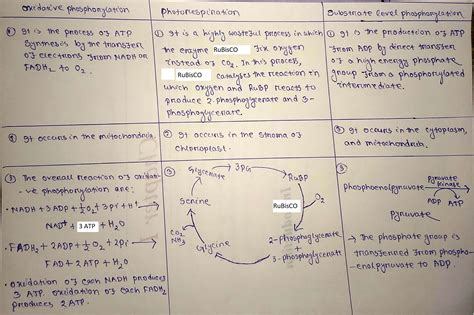 Oxidative phosphorylation
① It is the process of ATP
synthesis by the transfer
of electrons from NADH or
FADH2 to O2.
② It occurs in the mitochondria.
③ The overall reaction of oxidat-
-ve phosphorylation are:
• NADH + 3 ADP + ½ O2 + 3Pi + H+ →
NAD+ + 3 ATP + H2O
• FADH2 + 2ADP + ½ O2 + 2Pi →
FAD + 2 ATP + H2O
• Oxidation of each NADH produces
3 ATP. Oxidation of each FADH2
produces 2 ATP.
Photorespiration
① It is a highly wasteful process in which
the enzyme RuBisCO fix oxygen
instead of CO2. In this process,
RuBisCO catalyses the reaction in
which oxygen and RuBP reacts to
produce 2-phosphoglycerate and 3-
phosphoglycerate.
② It occurs in the stroma of
chloroplast.
③
Glycerate
3PG
RuBP
RuBisCO
O2
2-phosphoglycerate
+
3-phosphoglycerate
Glycine
CO2
NH3
Serine
Substrate level phosphorylation
① It is the production of ATP
from ADP by direct transfer
of a high energy phosphate
group from a phosphorylated
intermediate.
② It occurs in the cytoplasm,
and mitochondria.
③
Phosphoenolpyruvate
Pyruvate
kinase
ADP ATP
Pyruvate
→ The phosphate group is
transferred from phospho-
-enolpyruvate to ADP.